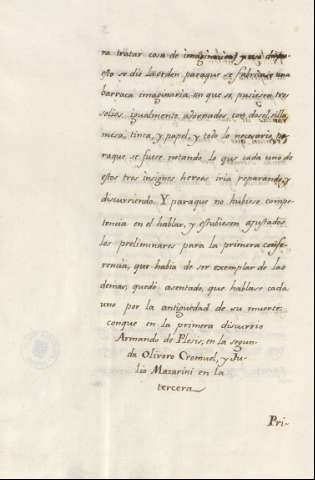 ra tratar cosa de imaginacion, y assi dispu-
esto se dio la orden paraque se fabricase una
barraca imaginaria en que se pusiesen tres
solios igualmente adornados con dosel, silla,
mesa, tinta, y papel, y todo lo necesario, pa-
raque se fuese notando, lo que cada uno de
estos tres insignes heroes iria reparando, y
discurriendo. Y paraque no hubiese compe-
tencia en el hablar, y estubiesen ajustados
los preliminares para la primera confe-
rencia, que habia de ser exemplar de las
demas, quedó asentado, que hablase cada
uno por la antiguedad de su muerte;
conque en la primera discurrio
Armando de Plesis, en la segun-
da Olivero Cromuel, y Ju-
lio Mazarini en la
tercera
Pri-